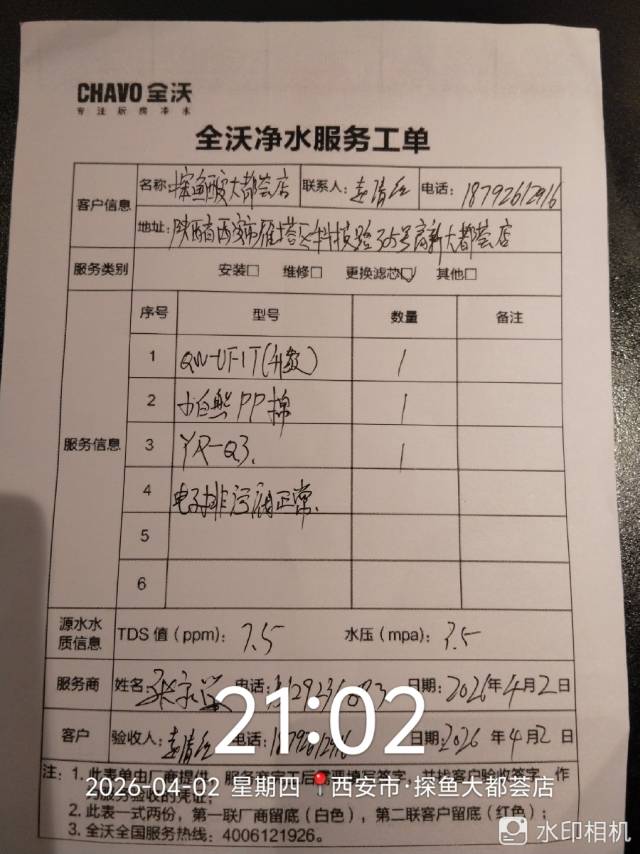 CHAVO 全沃
专注厨房净水
全沃净水服务工单
客户信息
名称: 探鱼 大都荟店 联系人: 电话: 18792612916
地址: 陕西省西安市雁塔区科技路35号高新大都荟店
服务类别 安装□ 维修□ 更换滤芯☑ 其他□
服务信息
序号 型号 数量 备注
1 QW-UF1T(升级) 1
2 小白熊PP棉 1
3 YR-Q3. 1
4 电子排污阀正常.
5
6
源水水质信息 TDS值(ppm): 7.5 水压(mpa): 3.5
服务商 姓名 电话: 日期: 2026年4月2日
客户 验收人: 电话: 日期: 2026年4月2日
21:02
注: 1. 此表单由厂商提供,服务 后 填写签字,并找客户验收签字,作
为服务验收的凭证;
2026-04-02 星期四 📍西安市·探鱼大都荟店
2. 此表一式两份,第一联厂商留底(白色),第二联客户留底(红色);
3. 全沃全国服务热线: 4006121926.
水印相机